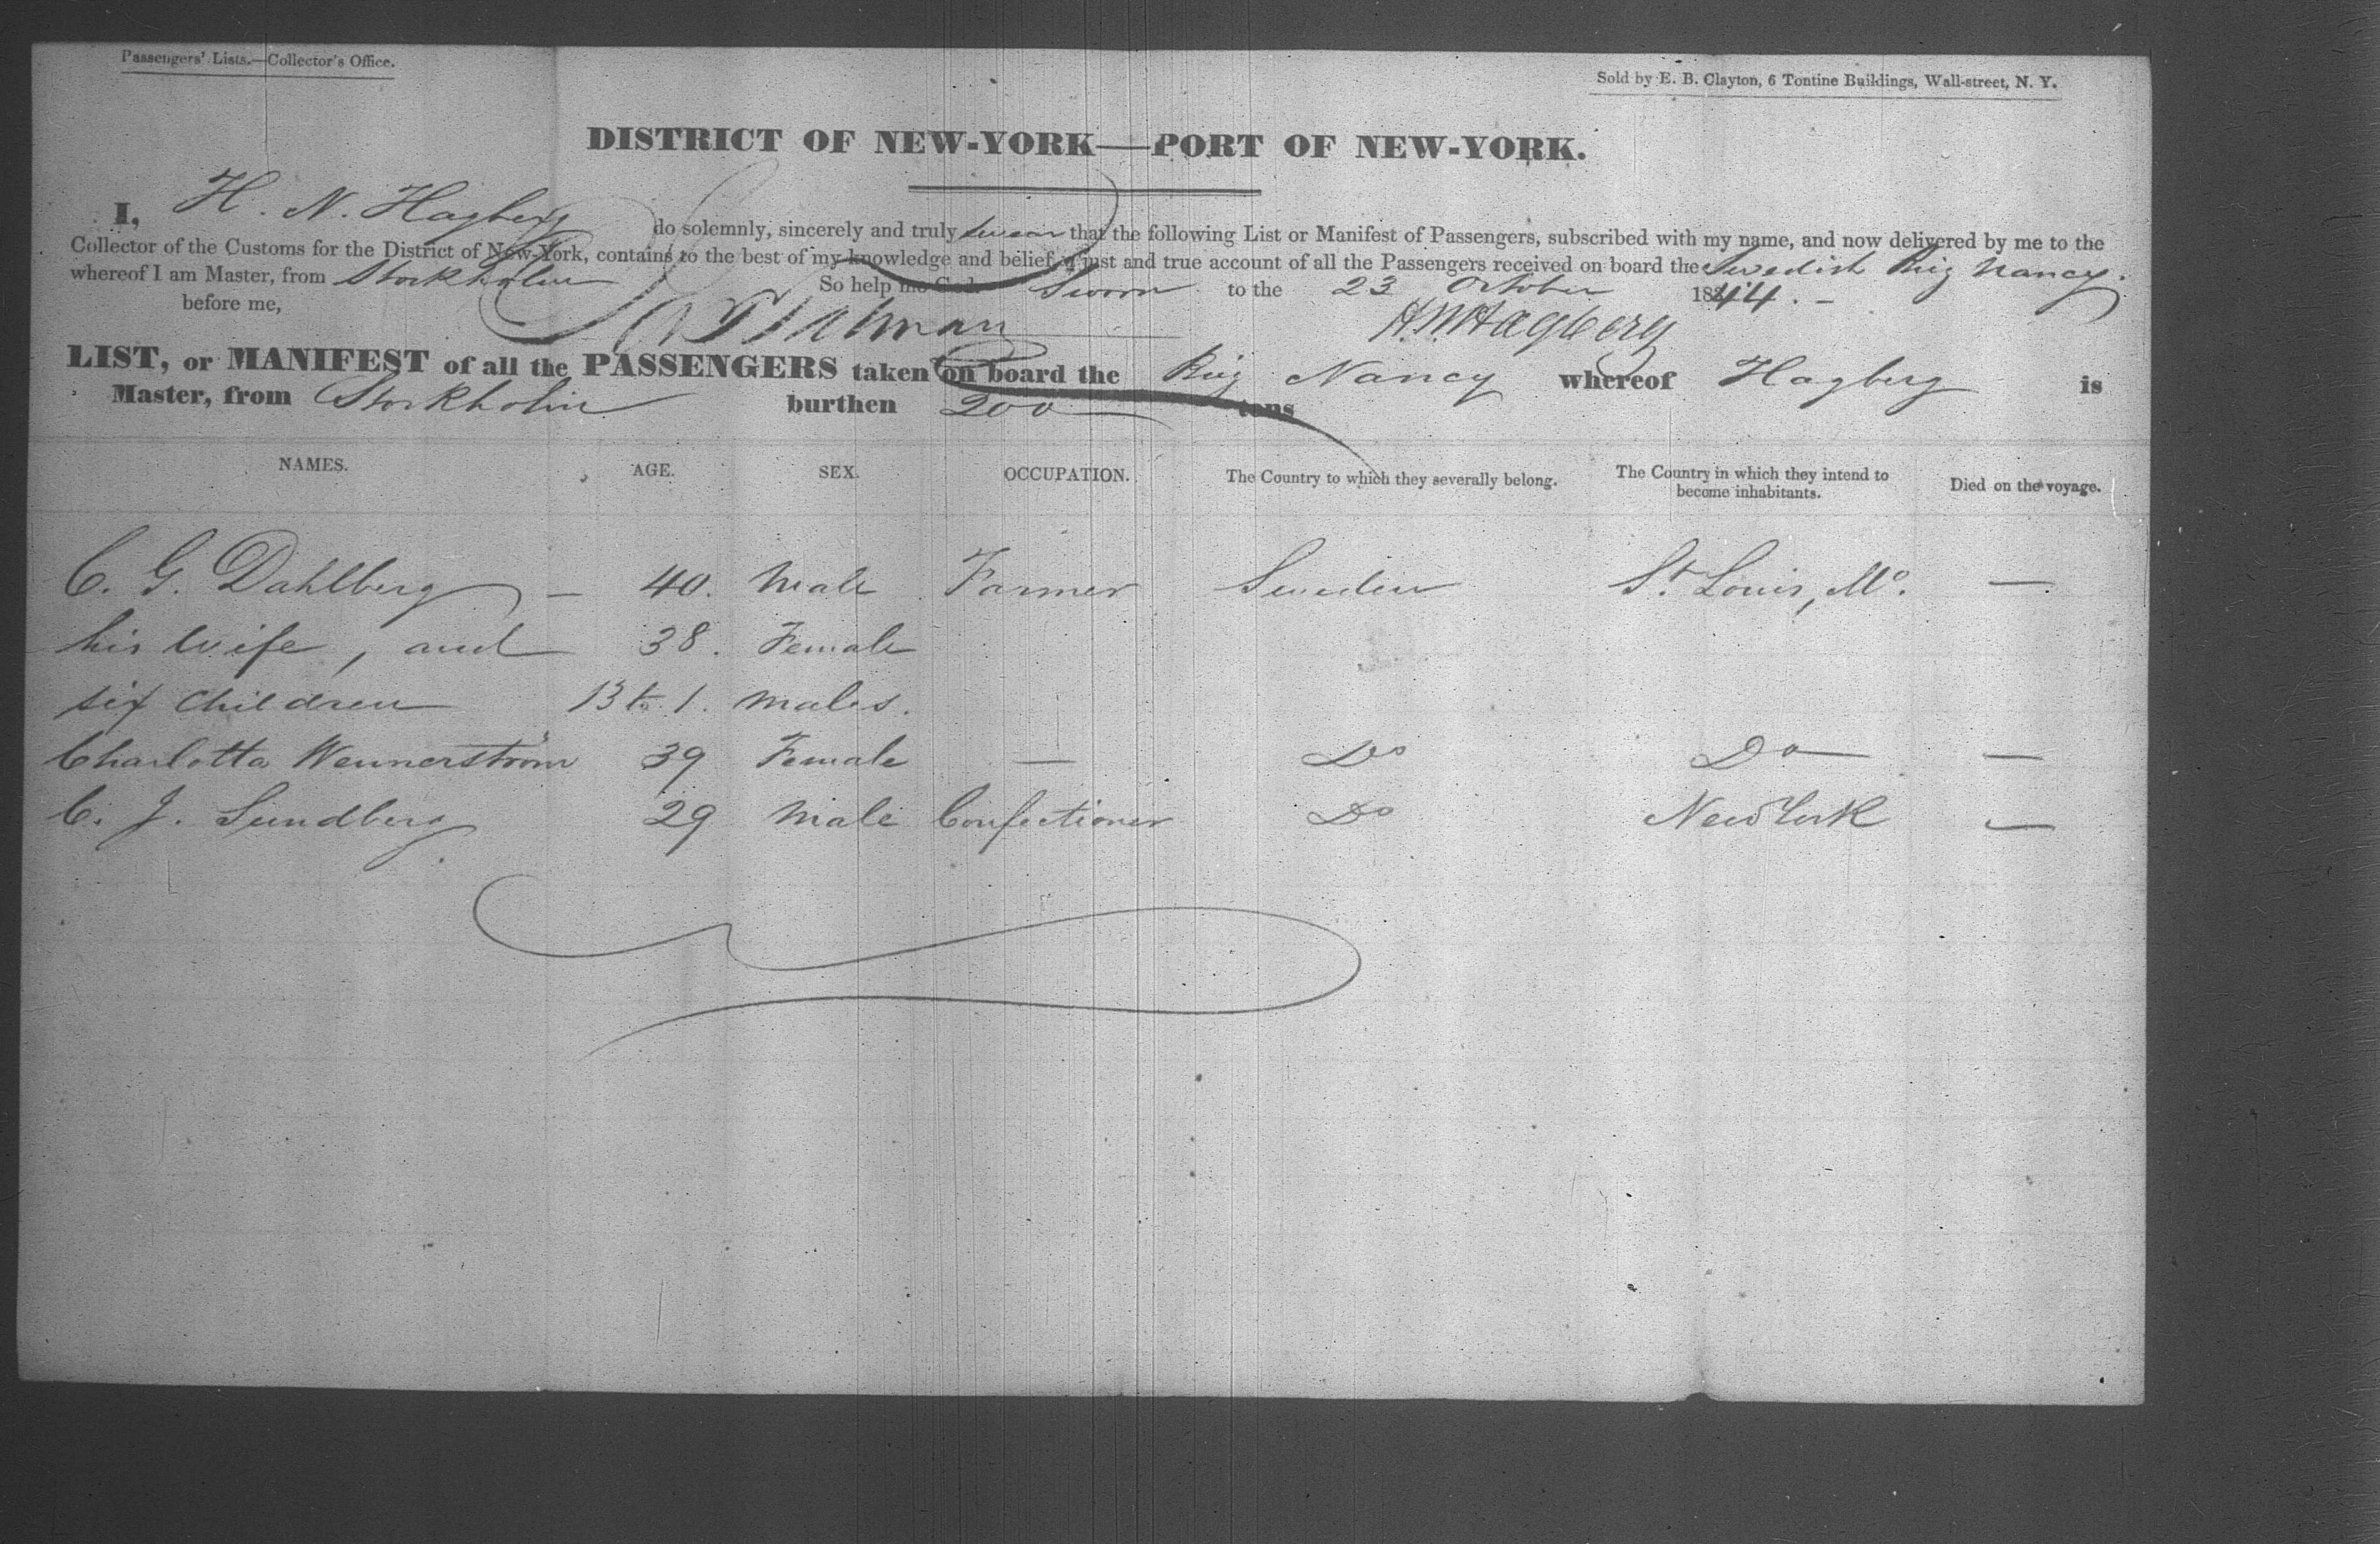 Passengers' Lists.—Collector's Office.
Sold by E. B. Clayton, 6 Tontine Buildings, Wall-street, N. Y.
DISTRICT OF NEW-YORK—PORT OF NEW-YORK.
I, H. N. Hagberg do solemnly, sincerely and truly swear that the following List or Manifest of Passengers, subscribed with my name, and now delivered by me to the
Collector of the Customs for the District of New-York, contains to the best of my knowledge and belief, a just and true account of all the Passengers received on board the Swedish Brig Nancy.
whereof I am Master, from Stockholm So help me God. Sworn to the 23 October 1844.
before me,
H. N. Hagberg
LIST, or MANIFEST of all the PASSENGERS taken on board the Brig Nancy whereof Hagberg is
Master, from Stockholm burthen 200 tons
NAMES. AGE. SEX. OCCUPATION. The Country to which they severally belong. The Country in which they intend to become inhabitants. Died on the voyage.
C. G. Dahlberg — 40. Male Farmer Sweden St. Louis, Mo. —
his wife, and 38. Female
six children 13 to 1. males.
Charlotta Wennerström 39 Female — Do Do —
C. J. Sundberg 29 Male Confectioner Do New York —